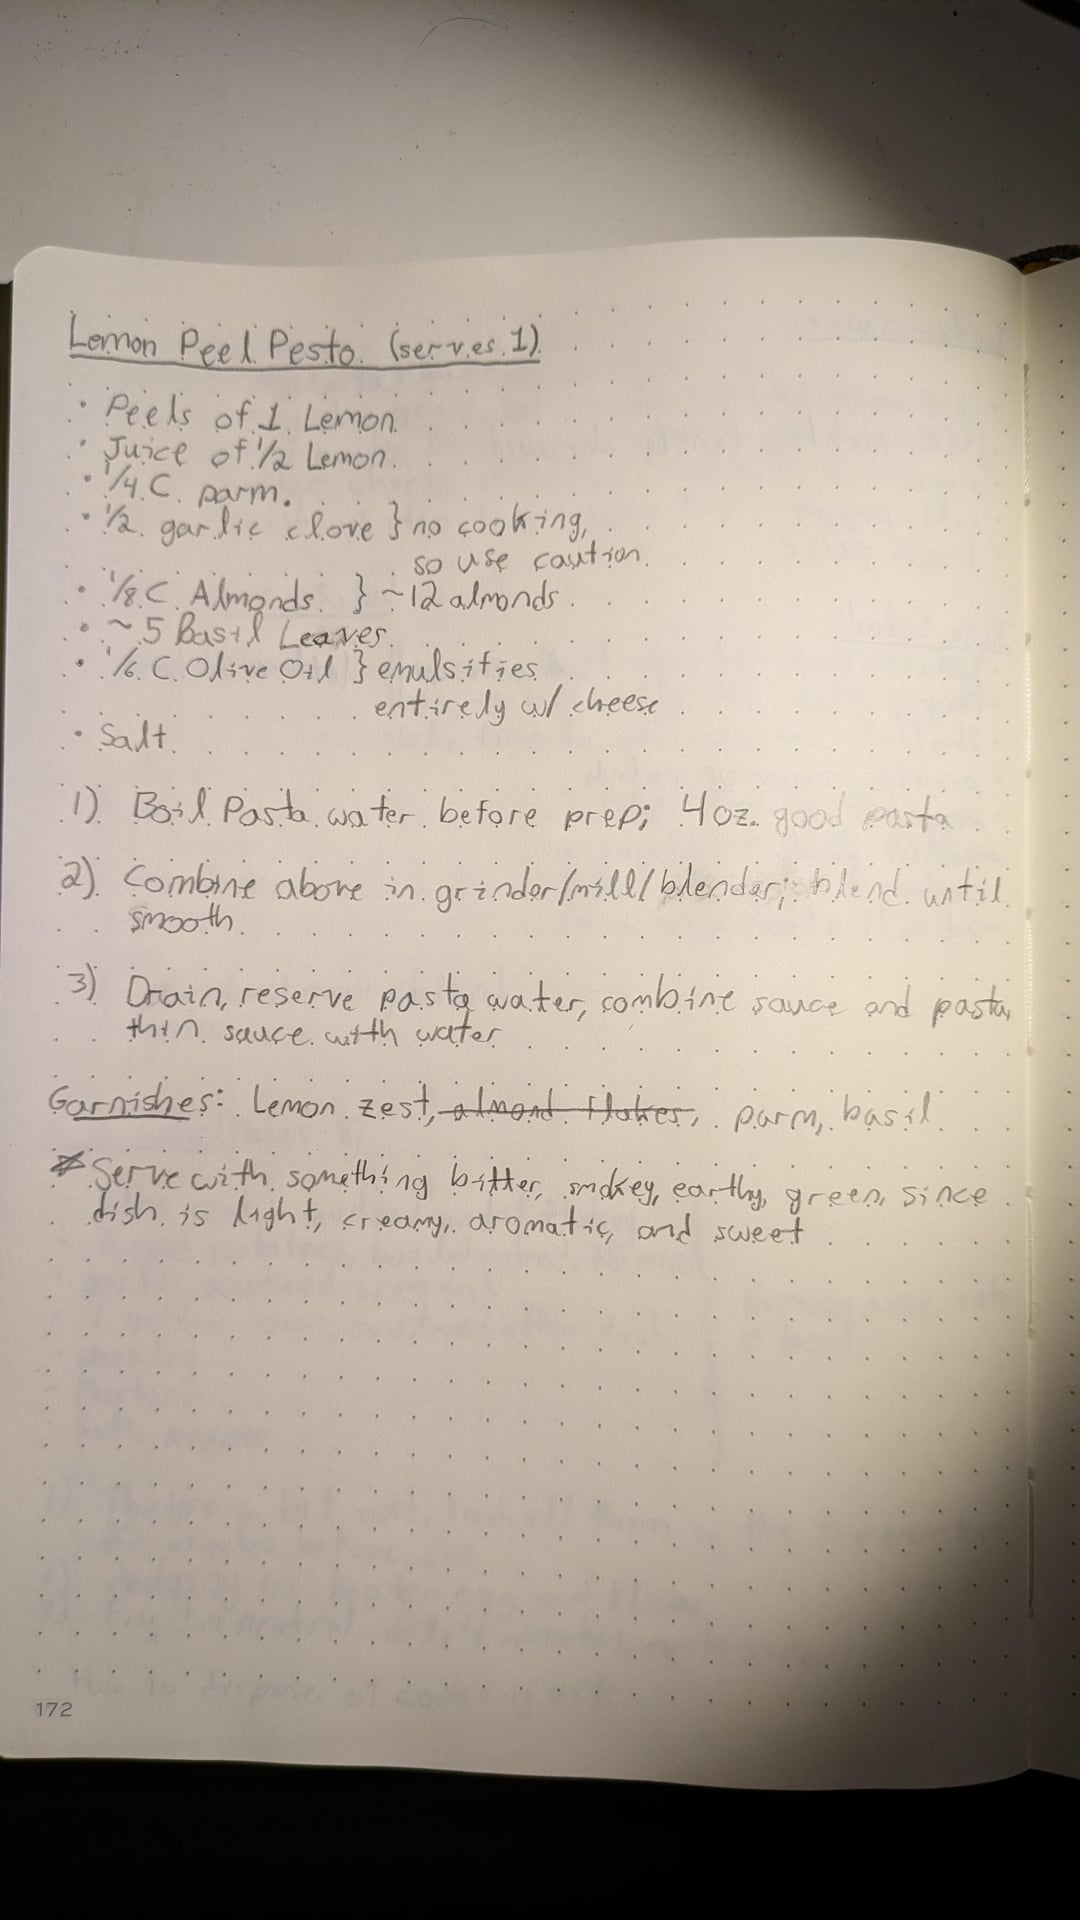 Lemon Peel Pesto (serves 1)
• Peels of 1 Lemon
• Juice of 1/2 Lemon
• 1/4 C. parm.
• 1/2 garlic clove } no cooking,
so use caution
• 1/8 C. Almonds } ~12 almonds
• ~5 Basil Leaves
• 1/6 C. Olive Oil } emulsifies
entirely w/ cheese
• Salt
1) Boil Pasta water before prep; 4oz. good pasta
2) Combine above in grinder/mill/blender; blend until
smooth
3) Drain, reserve pasta water, combine sauce and pasta,
thin sauce with water
Garnishes: Lemon zest, almond flakes, parm, basil
* Serve with something bitter, smokey, earthy, green, since
dish is light, creamy, aromatic, and sweet
172